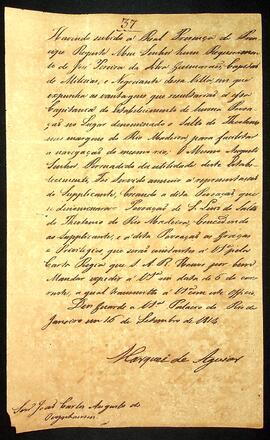 37
Havendo subido á Real Presença do Principe
Regente Meu Senhor hum Requerimento
de José Pereira da Silva Guimarães, Capitão
de Milicias, e Negociante dessa Villa, em que
expunha as vantagens que resultarião a essa
Capitania do Estabelecimento de huma Povoa-
ção no Lugar denominado o Salto do Theotonio
nas margens do Rio Madeira para facilitar
a navegação do mesmo rio. O Mesmo Augusto
Senhor Persuadido da utilidade deste Estabe-
lecimento, Foi Servido annuir á representação
do Supplicante, Creando a dita Povoação que
se denominará Povoação de S. Luiz do Salto
do Theotonio do Rio Madeira, Concedendo
ao Supplicante, e á dita Povoação as Graças
e Privilegios que serão constantes a V.Sª pela
Carta Regia que S. A. R. Houve por bem
Mandar expedir a V.Sª em data de 6 do cor-
rente, a qual transmitto a V.Sª com este Officio.
Deos Guarde a V.Sª Palacio do Rio de
Janeiro em 16 de Setembro de 1814
Marquez de Aguiar
Senr. João Carlos Augusto de
Oeynhausen